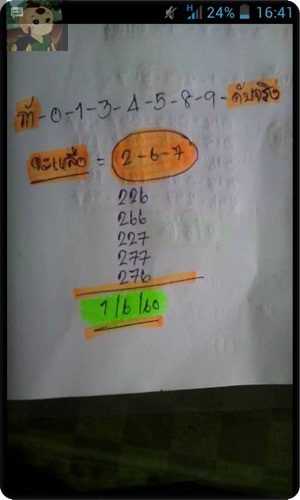 H 24% 16:41
ถ้า-0-1-3-4-5-8-9-ดับจริง
จะเหลือ = 2-6-7
226
266
227
277
276
1/6/60